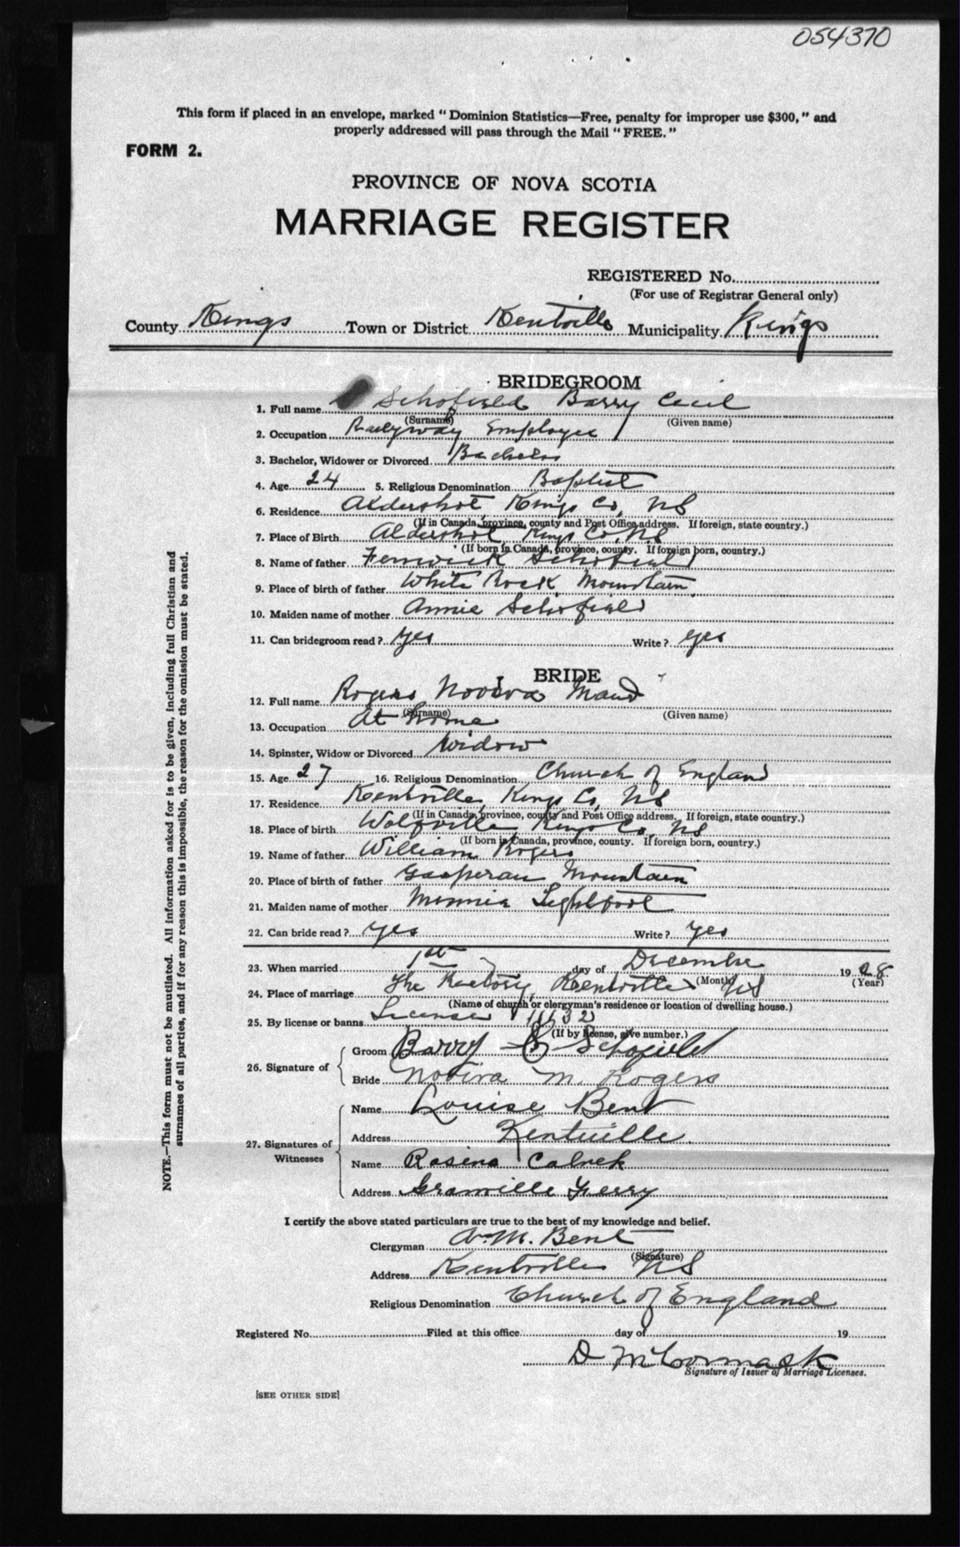 054370
This form if placed in an envelope, marked "Dominion Statistics—Free, penalty for improper use $300," and
properly addressed will pass through the Mail "FREE."
FORM 2.
PROVINCE OF NOVA SCOTIA
MARRIAGE REGISTER
REGISTERED No.
(For use of Registrar General only)
County Kings Town or District Kentville Municipality Kings
BRIDEGROOM
1. Full name Schofield Barry Cecil
(Surname) (Given name)
2. Occupation Railyway Employee
3. Bachelor, Widower or Divorced Bachelor
4. Age 24 5. Religious Denomination Baptist
6. Residence Aldershot Kings Co, NS
(If in Canada, province, county and Post Office address. If foreign, state country.)
7. Place of Birth Aldershot Kings Co, NS
(If born in Canada, province, county. If foreign born, country.)
8. Name of father Fenwick Schofield
9. Place of birth of father White Rock Mountain
10. Maiden name of mother Annie Schofield
11. Can bridegroom read? yes Write? yes
BRIDE
12. Full name Rogers Novira Maud
(Surname) (Given name)
13. Occupation At home
14. Spinster, Widow or Divorced Widow
15. Age 27 16. Religious Denomination Church of England
17. Residence Kentville, Kings Co, NS
(If in Canada, province, county and Post Office address. If foreign, state country.)
18. Place of birth Wolfville Kings Co, NS
(If born in Canada, province, county. If foreign born, country.)
19. Name of father William Rogers
20. Place of birth of father Gasperau Mountain
21. Maiden name of mother Minnie Lightfoot
22. Can bride read? yes Write? yes
23. When married 1st day of December 1928
(Month) (Year)
24. Place of marriage The Rectory, Kentville NS
(Name of church or clergyman's residence or location of dwelling house.)
25. By license or banns License 11632
(If by license, give number.)
26. Signature of
Groom Barry C Schofield
Bride Novira M. Rogers
27. Signatures of Witnesses
Name Louise Bent
Address Kentville
Name Rosina Calnek
Address Granville Ferry
I certify the above stated particulars are true to the best of my knowledge and belief.
Clergyman A. M. Bent
(Signature)
Address Kentville NS
Religious Denomination Church of England
Registered No. Filed at this office day of 19
D McCormack
Signature of Issuer of Marriage Licenses.
[SEE OTHER SIDE]
NOTE.—This form must not be mutilated. All information asked for is to be given, including full Christian and
surnames of all parties, and if for any reason this is impossible, the reason for the omission must be stated.